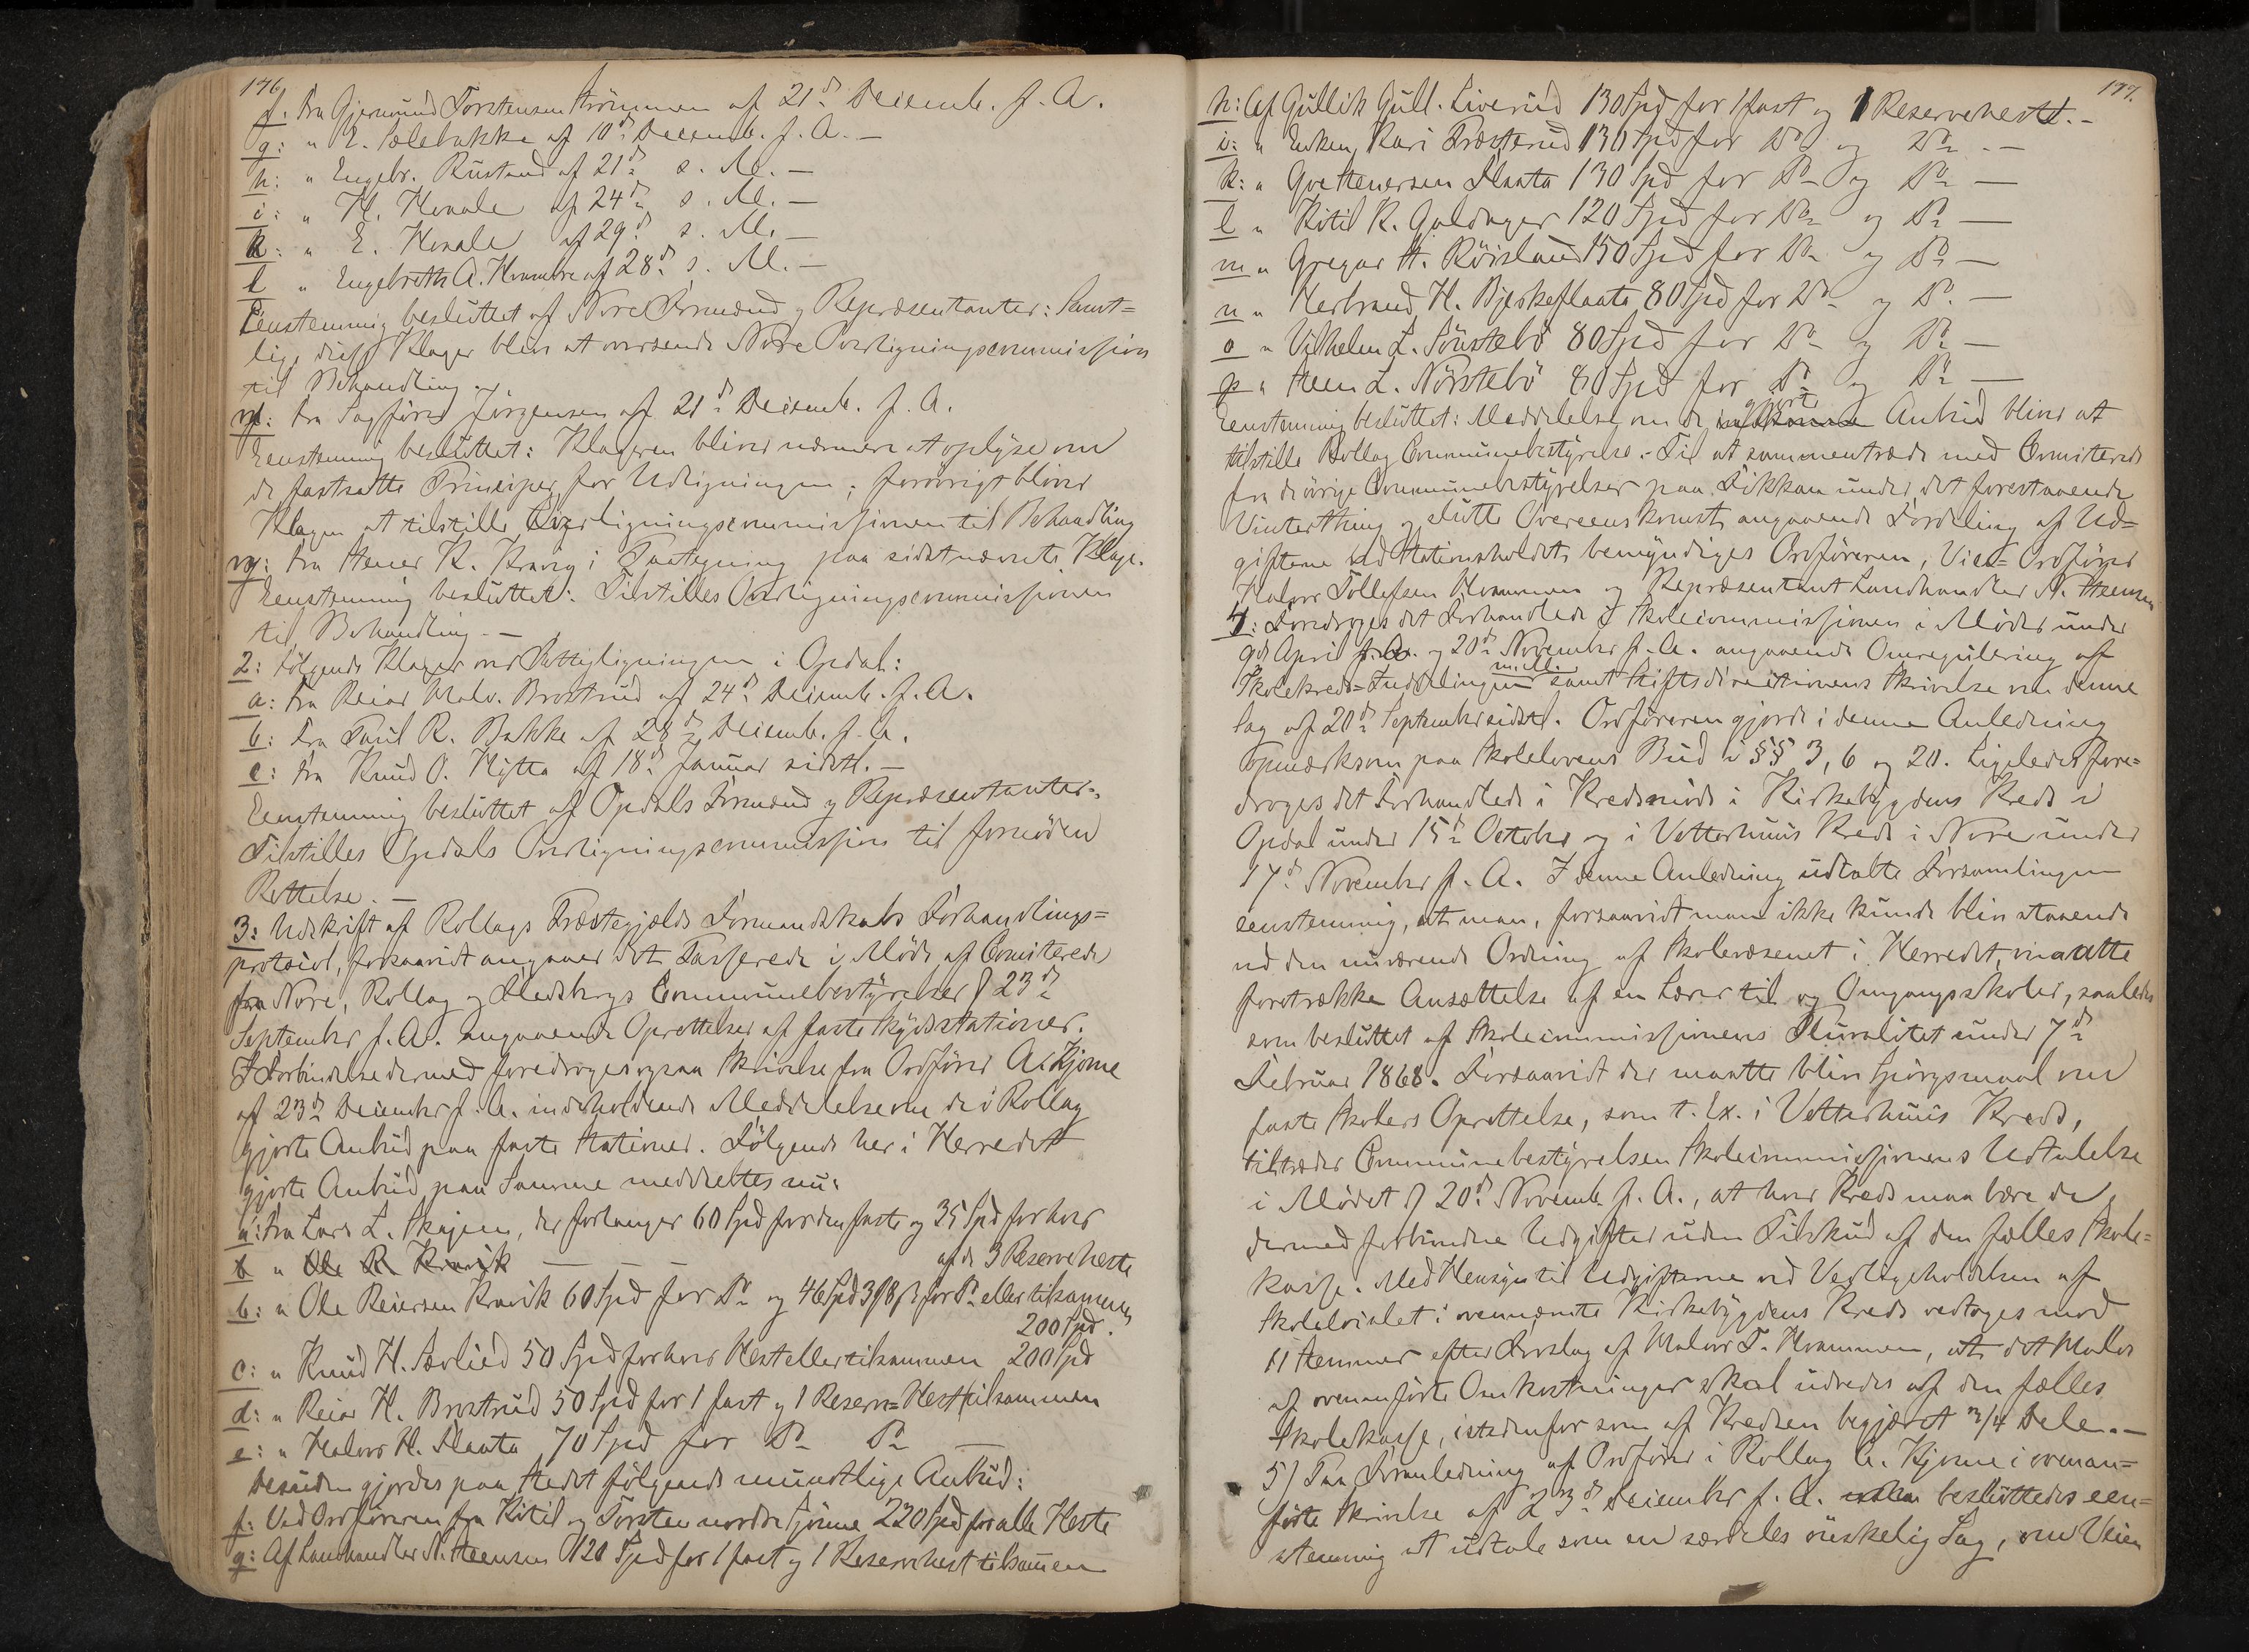 176.
f. Fra Gjermund Torstensen Strömmen af 21d Decemb. f. A.
g: " E. Sælebakke af 10d Decemb. f. A. —
h: " Engebr. Rustand af 21d s. M. —
i: " H. Hvaale af 24d s. M. —
k: " E. Hvaale af 29d s. M. —
l " Engebreth A. Hvambre af 28d s. M. —
Eenstemmig besluttet af Nore Formænd og Repræsentanter: Samt=
lige disse Klager bliver at oversende Nore Overligningscommission
til Behandling.
m: Fra Sagfører Jörgensen af 21d Decemb. f. A.
Eenstemmig besluttet: Klageren bliver nærmere at oplyse om
de fastsatte Principer for Udligningen; forövrigt bliver
Klagen at tilstille Overligningscommissionen til Behandling
n: Fra Hener K. Kravig i Paategning paa sidstnævnte Klage.
Eenstemmig besluttet: Tilstilles Overligningscommissionen
til Behandling. —
2: Følgende Klager over Fattigligningen i Opdal:
a: Fra Reiar Halv. Brostrud af 24d Decemb. f. A.
b: Fra Paul R. Bakke af 28d Decemb. f. A.
c: Fra Knud O. Hytta af 18d Januar sidstl. —
Eenstemmig besluttet af Opdals Formænd og Repræsentanter:
Tilstilles Opdals Overligningscommission til fornöden
Rettelse. —
3: Udskrift af Rollags Præstegjelds Formandskabs Forhandlings=
protocol, forsaavidt angaaer det Passerede i Møde af Comiterede
fra Nore, Rollag og Flesbergs Communebestyrelser d. 23d
September f. A. angaaende Oprettelser af faste Skydsstationer.
I Forbindelse dermed foredroges ogsaa Skrivelse fra Ordfører A. Kjome
af 23d December f. A. indeholdende Meddelelse om de i Rollag
gjorte Anbud paa faste Stationer. Følgende her i Herredet
gjorte Anbud paa Samme meddeeltes nu:
a: Fra Lars L. Skajem, der forlanger 60 Spd for den faste og 35 Spd for hver
af de 3 Reserveheste
b " Ole R. Kravik — — —
b: " Ole Reiersen Kravik 60 Spd for Do og 46 Spd 3 Ort 8 ß for Do eller tilsammen
200 Spd.
c: " Knud H. Sævlied 50 Spd for hver Hest eller tilsammen 200 Spd
d: " Reiar H. Brostrud 50 Spd for 1 fast og 1 Reserve=Hest tilsammen
e: " Halvor H. Flaata 70 Spd for Do Do —
Desuden gjordes paa Stedet følgende mundtlige Anbud:
f: Ved Ordføreren fra Kittil og Torsten nordre Tjönne 220 Spd for alle Heste
g: Af Landhandler N. Steensen 120 Spd for 1 fast og 1 Reservehest tilsammen
177.
h: Af Gullik Gull. Liverud 130 Spd for 1 fast og 1 Reservehest. —
i: " Enken Kari Præsterud 130 Spd for Do og Do —
k: " Gve Henersen Flaata 130 Spd for Do og Do —
l " Kittil K. Guldager 120 Spd for Do og Do —
m " Gregar H. Röisland 150 Spd for Do og Do —
n " Herbrand H. Bjerkeflaata 80 Spd for Do og Do —
o " Vilhelm L. Sönstebö 80 Spd for Do og Do —
p " Steen L. Nörstebö 80 Spd for Do og Do —
Eenstemmig besluttet: Meddelelse om de gjorte Anbud bliver at
tilstille Rollag Communebestyrelse. Til at sammentræde med Comiterede
fra de övrige Communebestyrelser paa Fikkan under det forestaaende
Vinterthing og slutte Overeenskomst angaaende Fordeling af Ud=
gifterne ved Stationsholdet bemyndiges Ordføreren, Vice=Ordfører
Halvor Tollefsen Hvammen og Repræsentant Landhandler N. Steensen
4: Foredroges det Forhandlede i Skolecommissionen i Møder under
9de April f. A. og 20d November f. A. angaaende Omregulering af
Skolekreds=Inddelingen m. M. samt Stiftsdirectionens Skrivelse om denne
Sag af 20d September sidstl. Ordføreren gjorde i denne Anledning
opmærksom paa Skolelovens Bud i §§ 3, 6 og 20. Ligeledes fore=
droges det Forhandlede i Kredsmøde i Kirkebygdens Kreds i
Opdal under 15d October og i Vetterhuus Kreds i Nore under
17d November f. A. I denne Anledning udtalte Forsamlingen
eenstemmig, at man, forsaavidt man ikke kunde blive staaende
ved den nuværende Ordning af Skolevæsenet i Herredet, maatte
foretrække Ansættelse af en Lærer til og Omgangsskoler, saaledes
som besluttet af Skolecommissionens Pluralitet under 7d
Februar 1868. Forsaavidt der maatte blive Spörgsmaal om
faste Skolers Oprettelse, som t. Ex. i Vetterhuus Kreds,
tiltræder Communebestyrelsen Skolecommissionens Udtalelse
i Mødet d. 20d Novemb. f. A., at hver Kreds maa bære de
dermed forbundne Udgifter uden Tilskud af den fælles Skole=
kasse. Med Hensyn til Udgifterne ved Vedligeholdelsen af
Skolelocalet i ovennævnte Kirkebygdens Kreds vedtoges mod
11 Stemmer efter Forslag af Halvor T. Hvammen, at det Halve
af ovenanførte Omkostninger skal udredes af den fælles
Skolekasse, istedenfor som af Kredsen begjæret 3/4 Dele. —
5) Paa Foranledning af Ordfører i Rollag A. Kjome i ovenan=
førte Skrivelse af 23d December f. A. besluttedes een=
stemmig at udtale som en særdeles önskelig Sag, om Veien